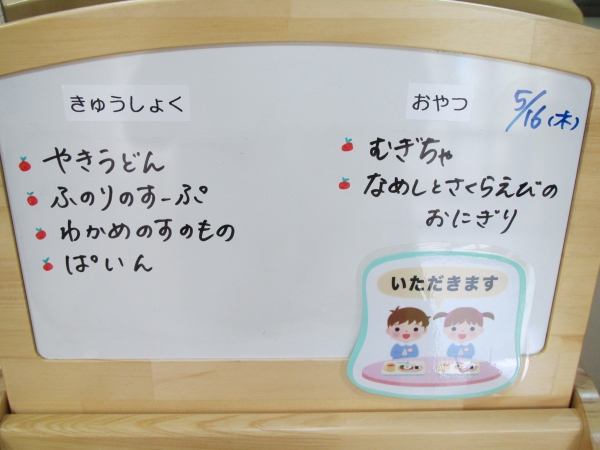 5/16(木)
きゅうしょく
やきうどん
ふのりのすーぷ
わかめのすのもの
ぱいん
おやつ
むぎちゃ
なめしとさくらえびの
おにぎり
いただきます